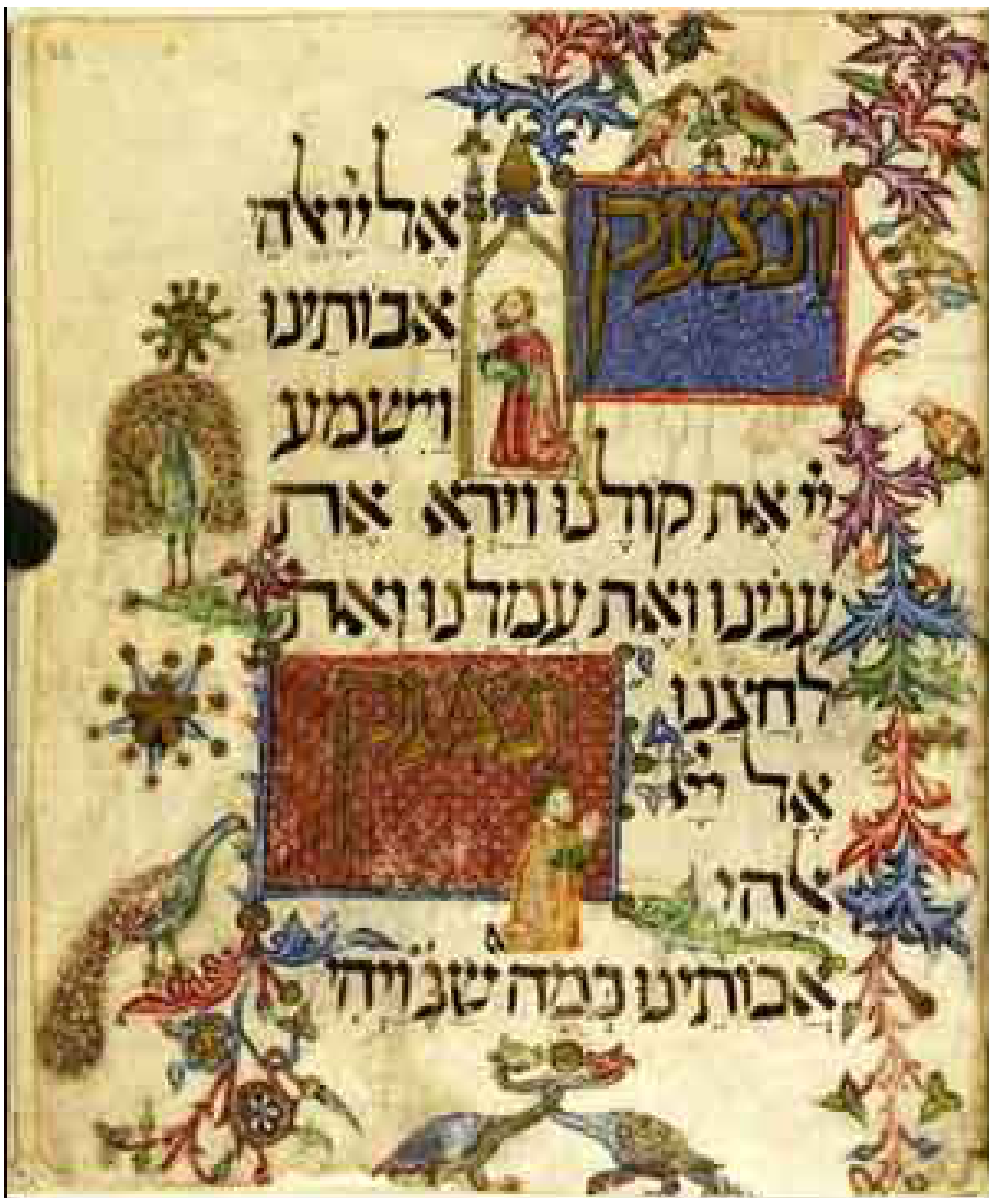 ונצעק
אל ייי אלהי
אבותינו
וישמע
יי את קולנו וירא את
ענינו ואת עמלנו ואת
לחצנו
ונצעק
אל ייי
אלהי
אבותינו כמה שנ ויהי